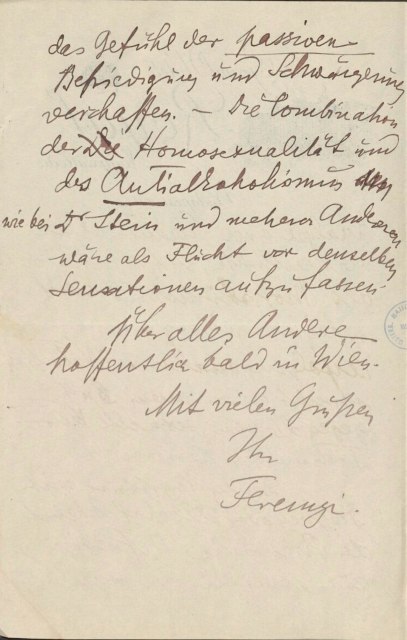 das Gefühl der passiven
Befriedigung und Schwängerung
verschaffen. – Die Combination
der Homosexualität und
des Antialkoholismus
wie bei Dr Stein und mehere Anderen
wäre als Flucht vor denselben
Sensationen aufzufassen.
Über alles Andere
hoffentlich bald in Wien.
Mit vielen Grüßen
Ihr
Ferenczi.